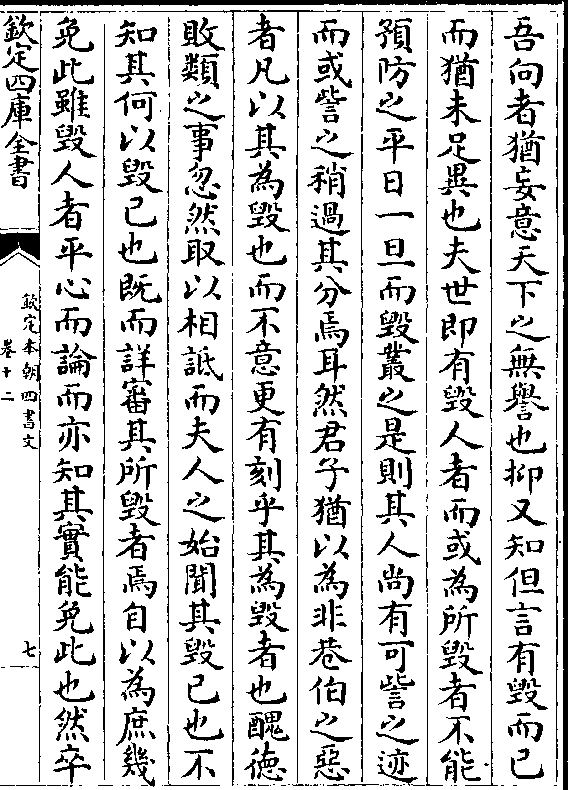 吾向者猶妄意天下之無譽也抑又知但言有毀而已
而猶未足異也夫世即有毀人者而或為所毀者不能
預防之平日一旦而毀叢之是則其人尚有可訾之迹
而或訾之稍過其分焉耳然君子猶以為非巷伯之惡
者凡以其為毀也而不意更有刻乎其為毀者也醜德
敗類之事忽然取以相詆而夫人之始聞其毀已也不
知其何以毀已也既而詳審其所毀者焉自以為庶幾
免此雖毀人者平心而論而亦知其實能免此也然卒
欽定四庫全書
欽定本朝四書文
卷十二
七